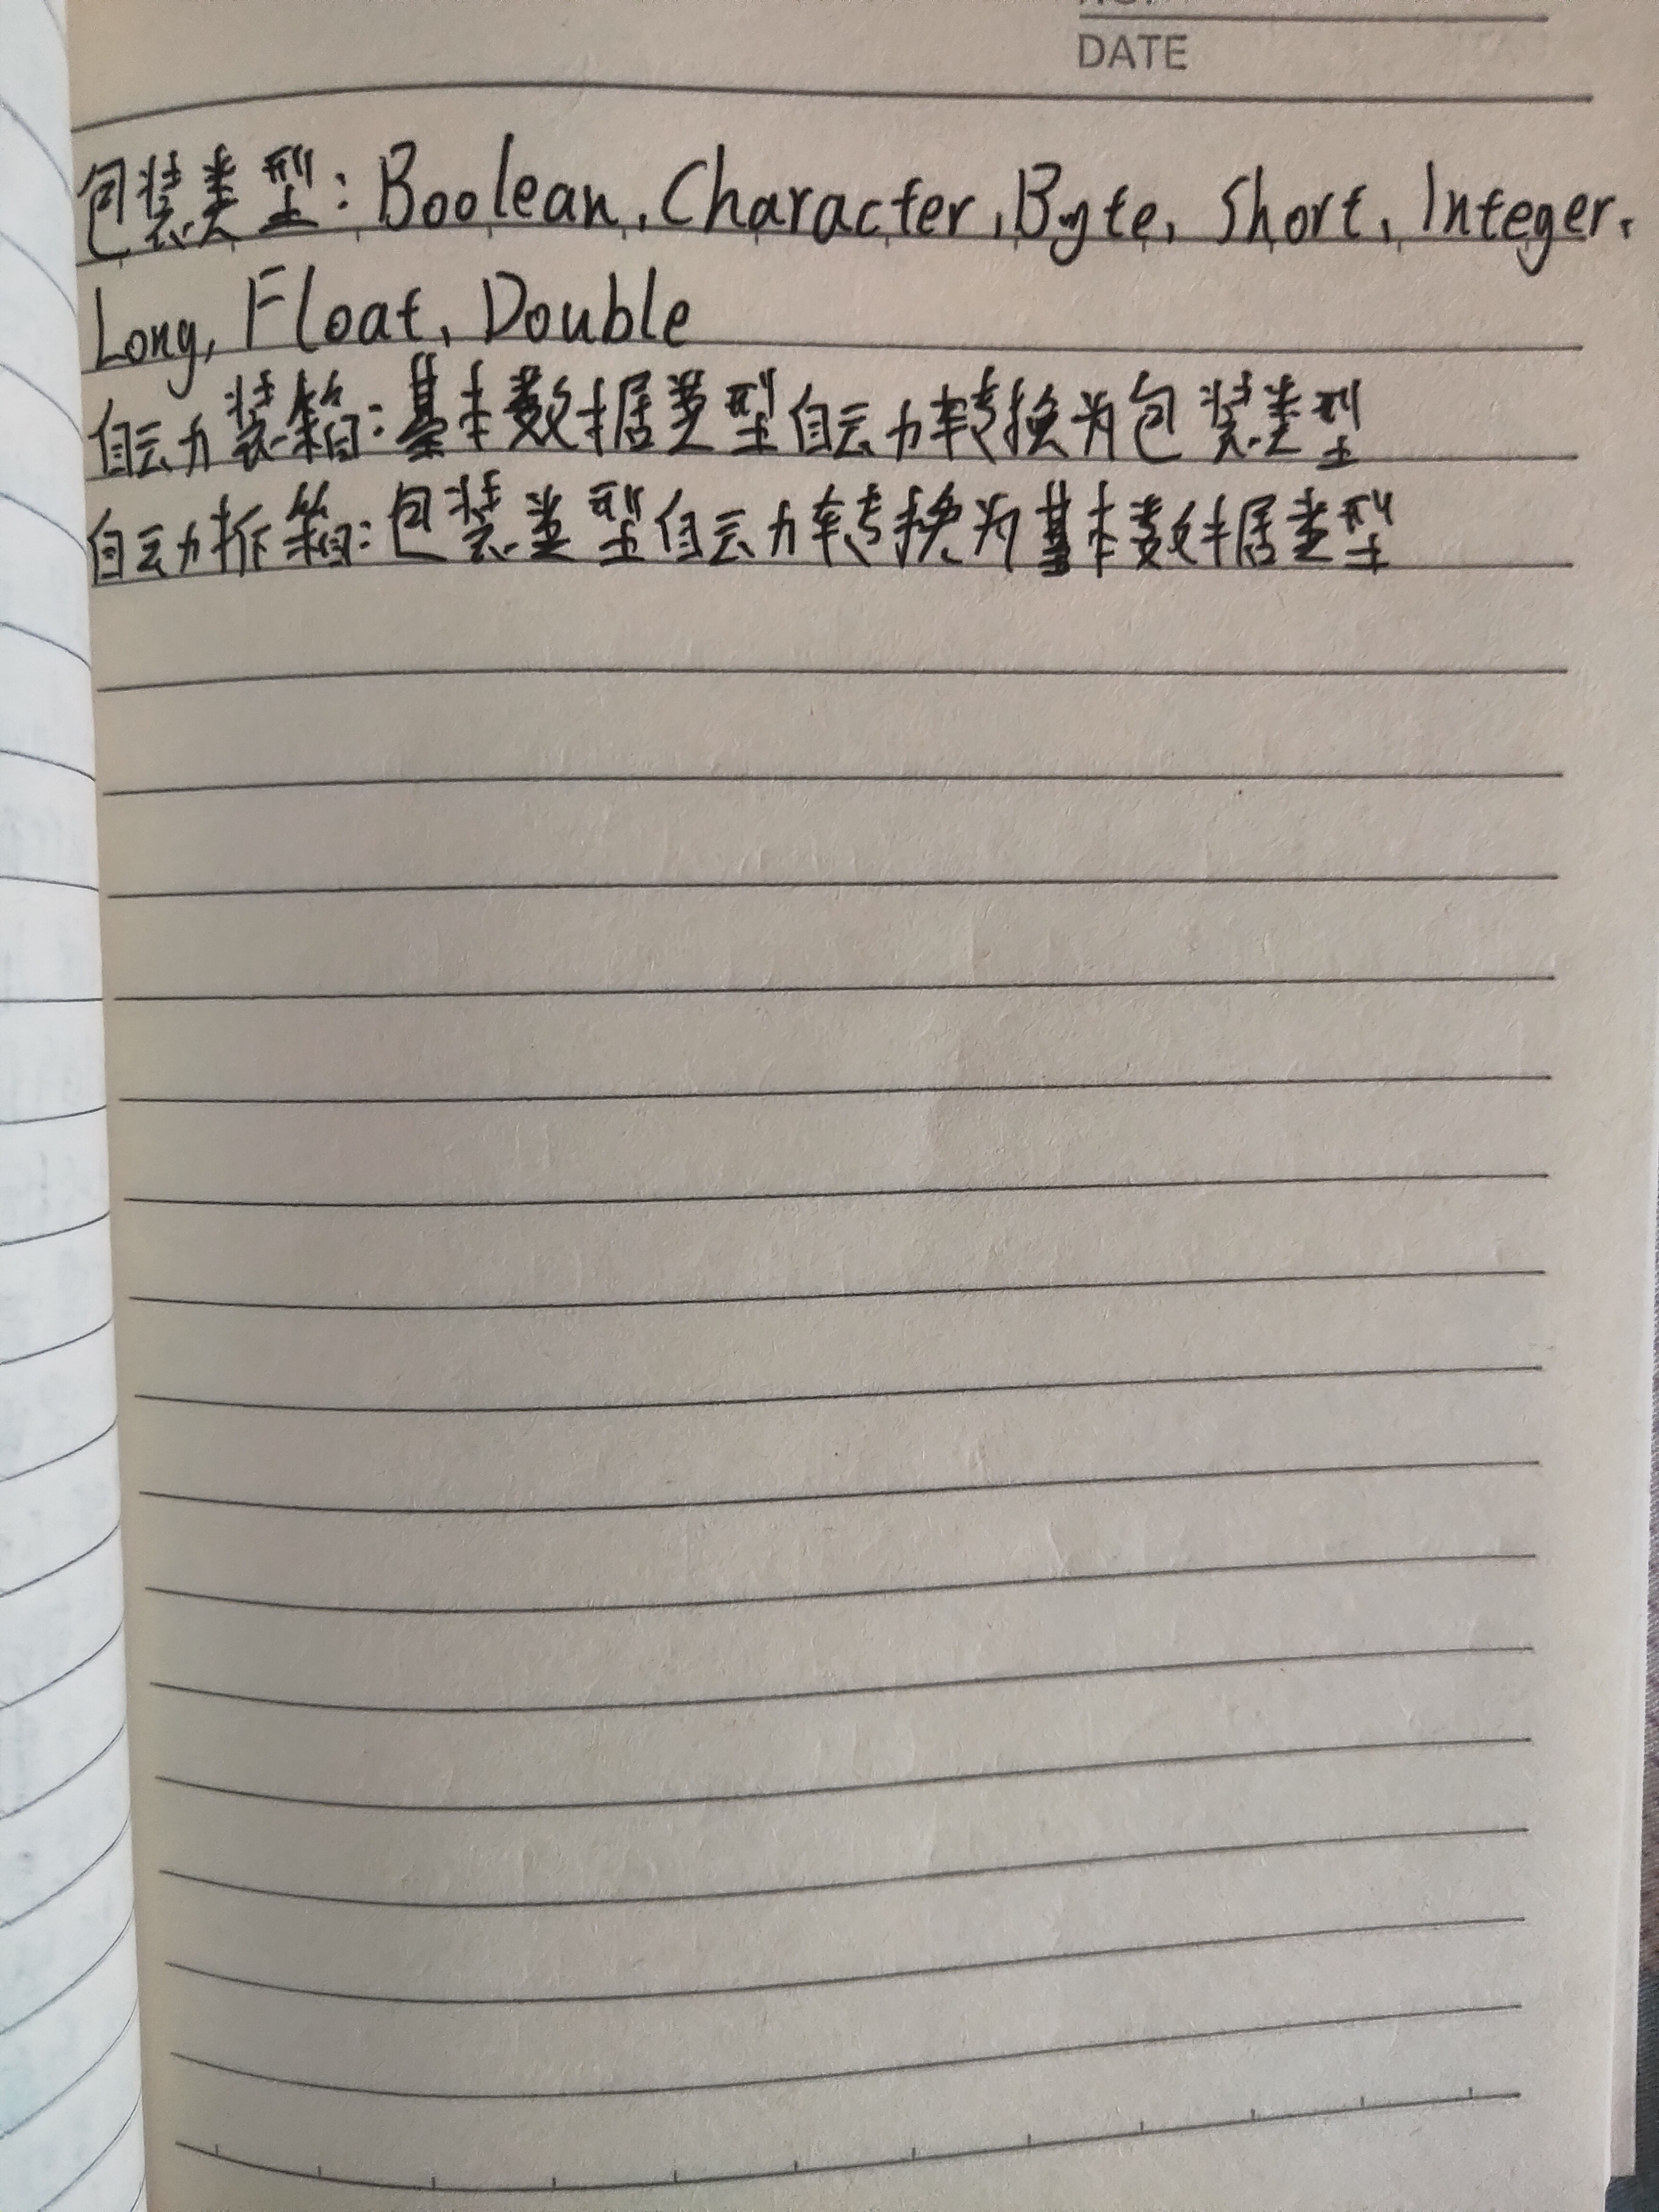 DATE
包装类型：Boolean, Character, Byte, Short, Integer,
Long, Float, Double
自动装箱：基本数据类型自动转换为包装类型
自动拆箱：包装类型自动转换为基本数据类型